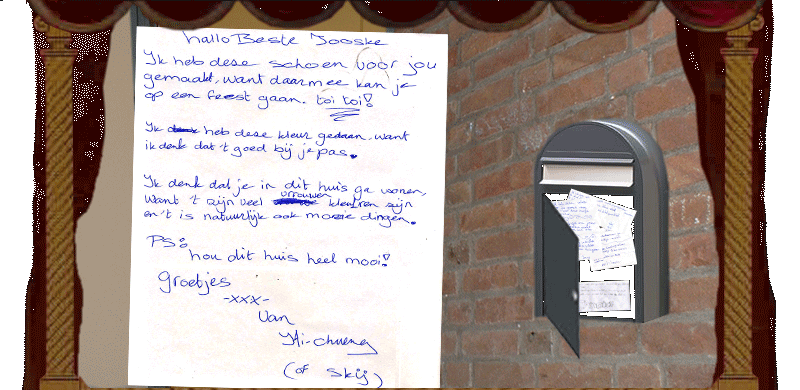 hallo Beste Jooske
Ik heb deze schoen voor jou
gemaakt, want daarmee kan je
op een feest gaan. toi toi!
Ik heb deze kleur gedaan, want
ik denk dat 't goed bij je pas.
Ik denk dat je in dit huis ga wonen,
want 't zijn veel vrouwen kleuren zijn
en 't is natuurlijk ook mooie dingen.
PS:
hou dit huis heel mooi!
groetjes
-xxx-
van
(of skij)